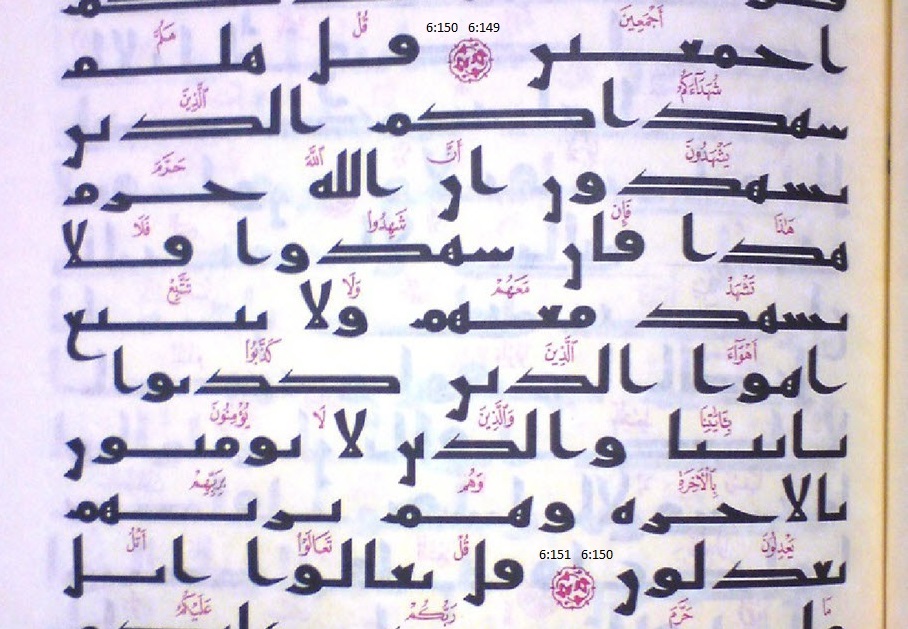 أَجْمَعِينَ 6:149 6:150 قُلْ هَلُمَّ
اجمعين قل هلم
شُهَدَآءَكُمُ ٱلَّذِينَ
شهداكم الذين
يَشْهَدُونَ أَنَّ ٱللَّهَ حَرَّمَ
يشهدون ان الله حرم
هَٰذَا فَإِن شَهِدُوا۟ فَلَا
هذا فان شهدوا فلا
تَشْهَدْ مَعَهُمْ وَلَا تَتَّبِعْ
تشهد معهم ولا تتبع
أَهْوَآءَ ٱلَّذِينَ كَذَّبُوا۟
اهوا الذين كذبوا
بِـَٔايَٰتِنَا وَٱلَّذِينَ لَا يُؤْمِنُونَ
بايتنا والذين لا يومنون
بِٱلْءَاخِرَةِ وَهُم بِرَبِّهِمْ
بالاخره وهم بربهم
يَعْدِلُونَ 6:150 6:151 قُلْ تَعَالَوْا۟ أَتْلُ
يعدلون قل تعالوا اتل
مَا حَرَّمَ رَبُّكُمْ عَلَيْكُمْ